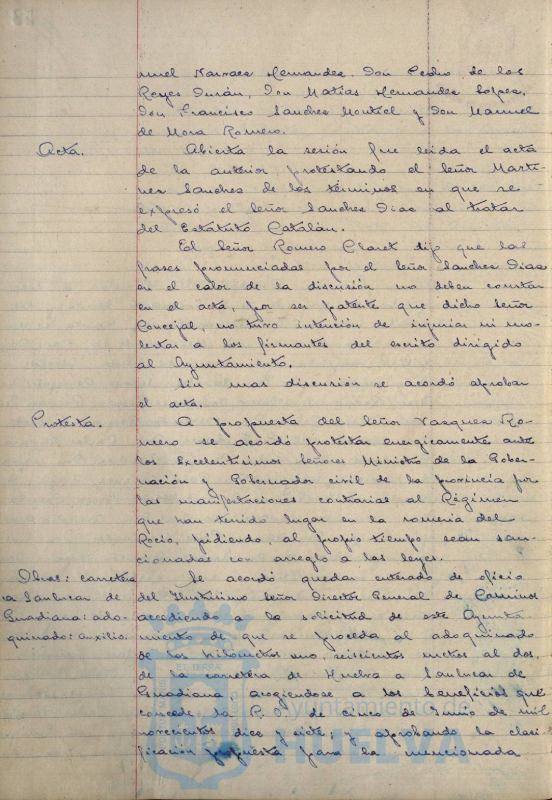 nuel Narvaez Hernandez. Don Pedro de los
Reyes Durán, Don Matías Hernandez Golpea,
Don Francisco Sanchez Montiel y Don Manuel
de Mora Romero.
Acta.
Abierta la sesión fue leida el acta
de la anterior, protestando el Señor Marti-
nez Sanchez de los términos en que se
expresó el Señor Sanchez Diaz al tratar
del Estatuto Catalán.
El Señor Romero Claret dijo que las
frases pronunciadas por el Señor Sanchez Diaz
en el calor de la discusión no deben constar
en el acta, por ser patente que dicho Señor
Concejal, no tuvo intención de injuriar ni mo-
lestar a los firmantes del escrito dirigido
al Ayuntamiento.
Sin mas discusión se acordó aprobar
el acta.
Protesta.
A propuesta del Señor Vazquez Ro-
mero se acordó protestar energicamente ante
los Excelentisimos Señores Ministro de la Gober-
nación y Gobernador civil de la provincia por
las manifestaciones contrarias al Régimen
que han tenido lugar en la romeria del
Rocio, pidiendo, al propio tiempo sean san-
cionadas con arreglo a las leyes.
Obras: carretera
a Sanlucar de
Guadiana: ado-
quinado: auxilio.
Se acordó quedar enterado de oficio
del Ilustrisimo Señor Director General de Caminos
accediendo a la solicitud de este Ayunta-
miento de que se proceda al adoquinado
de los kilometros uno, seiscientos metros al dos,
de la carretera de Huelva a Sanlucar de
Guadiana, acogiendose a los beneficios que
concede la R. O. de cinco de Junio de mil
novecientos diez y siete; y aprobando la clasi-
ficación propuesta para la mencionada
EL TERRA
Ayuntamiento de
HUELVA